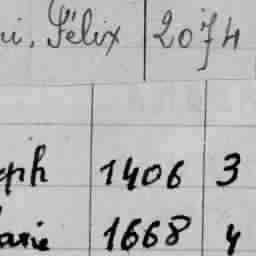 ui, Félix 2074
eph 1406 3
arie 1668 4